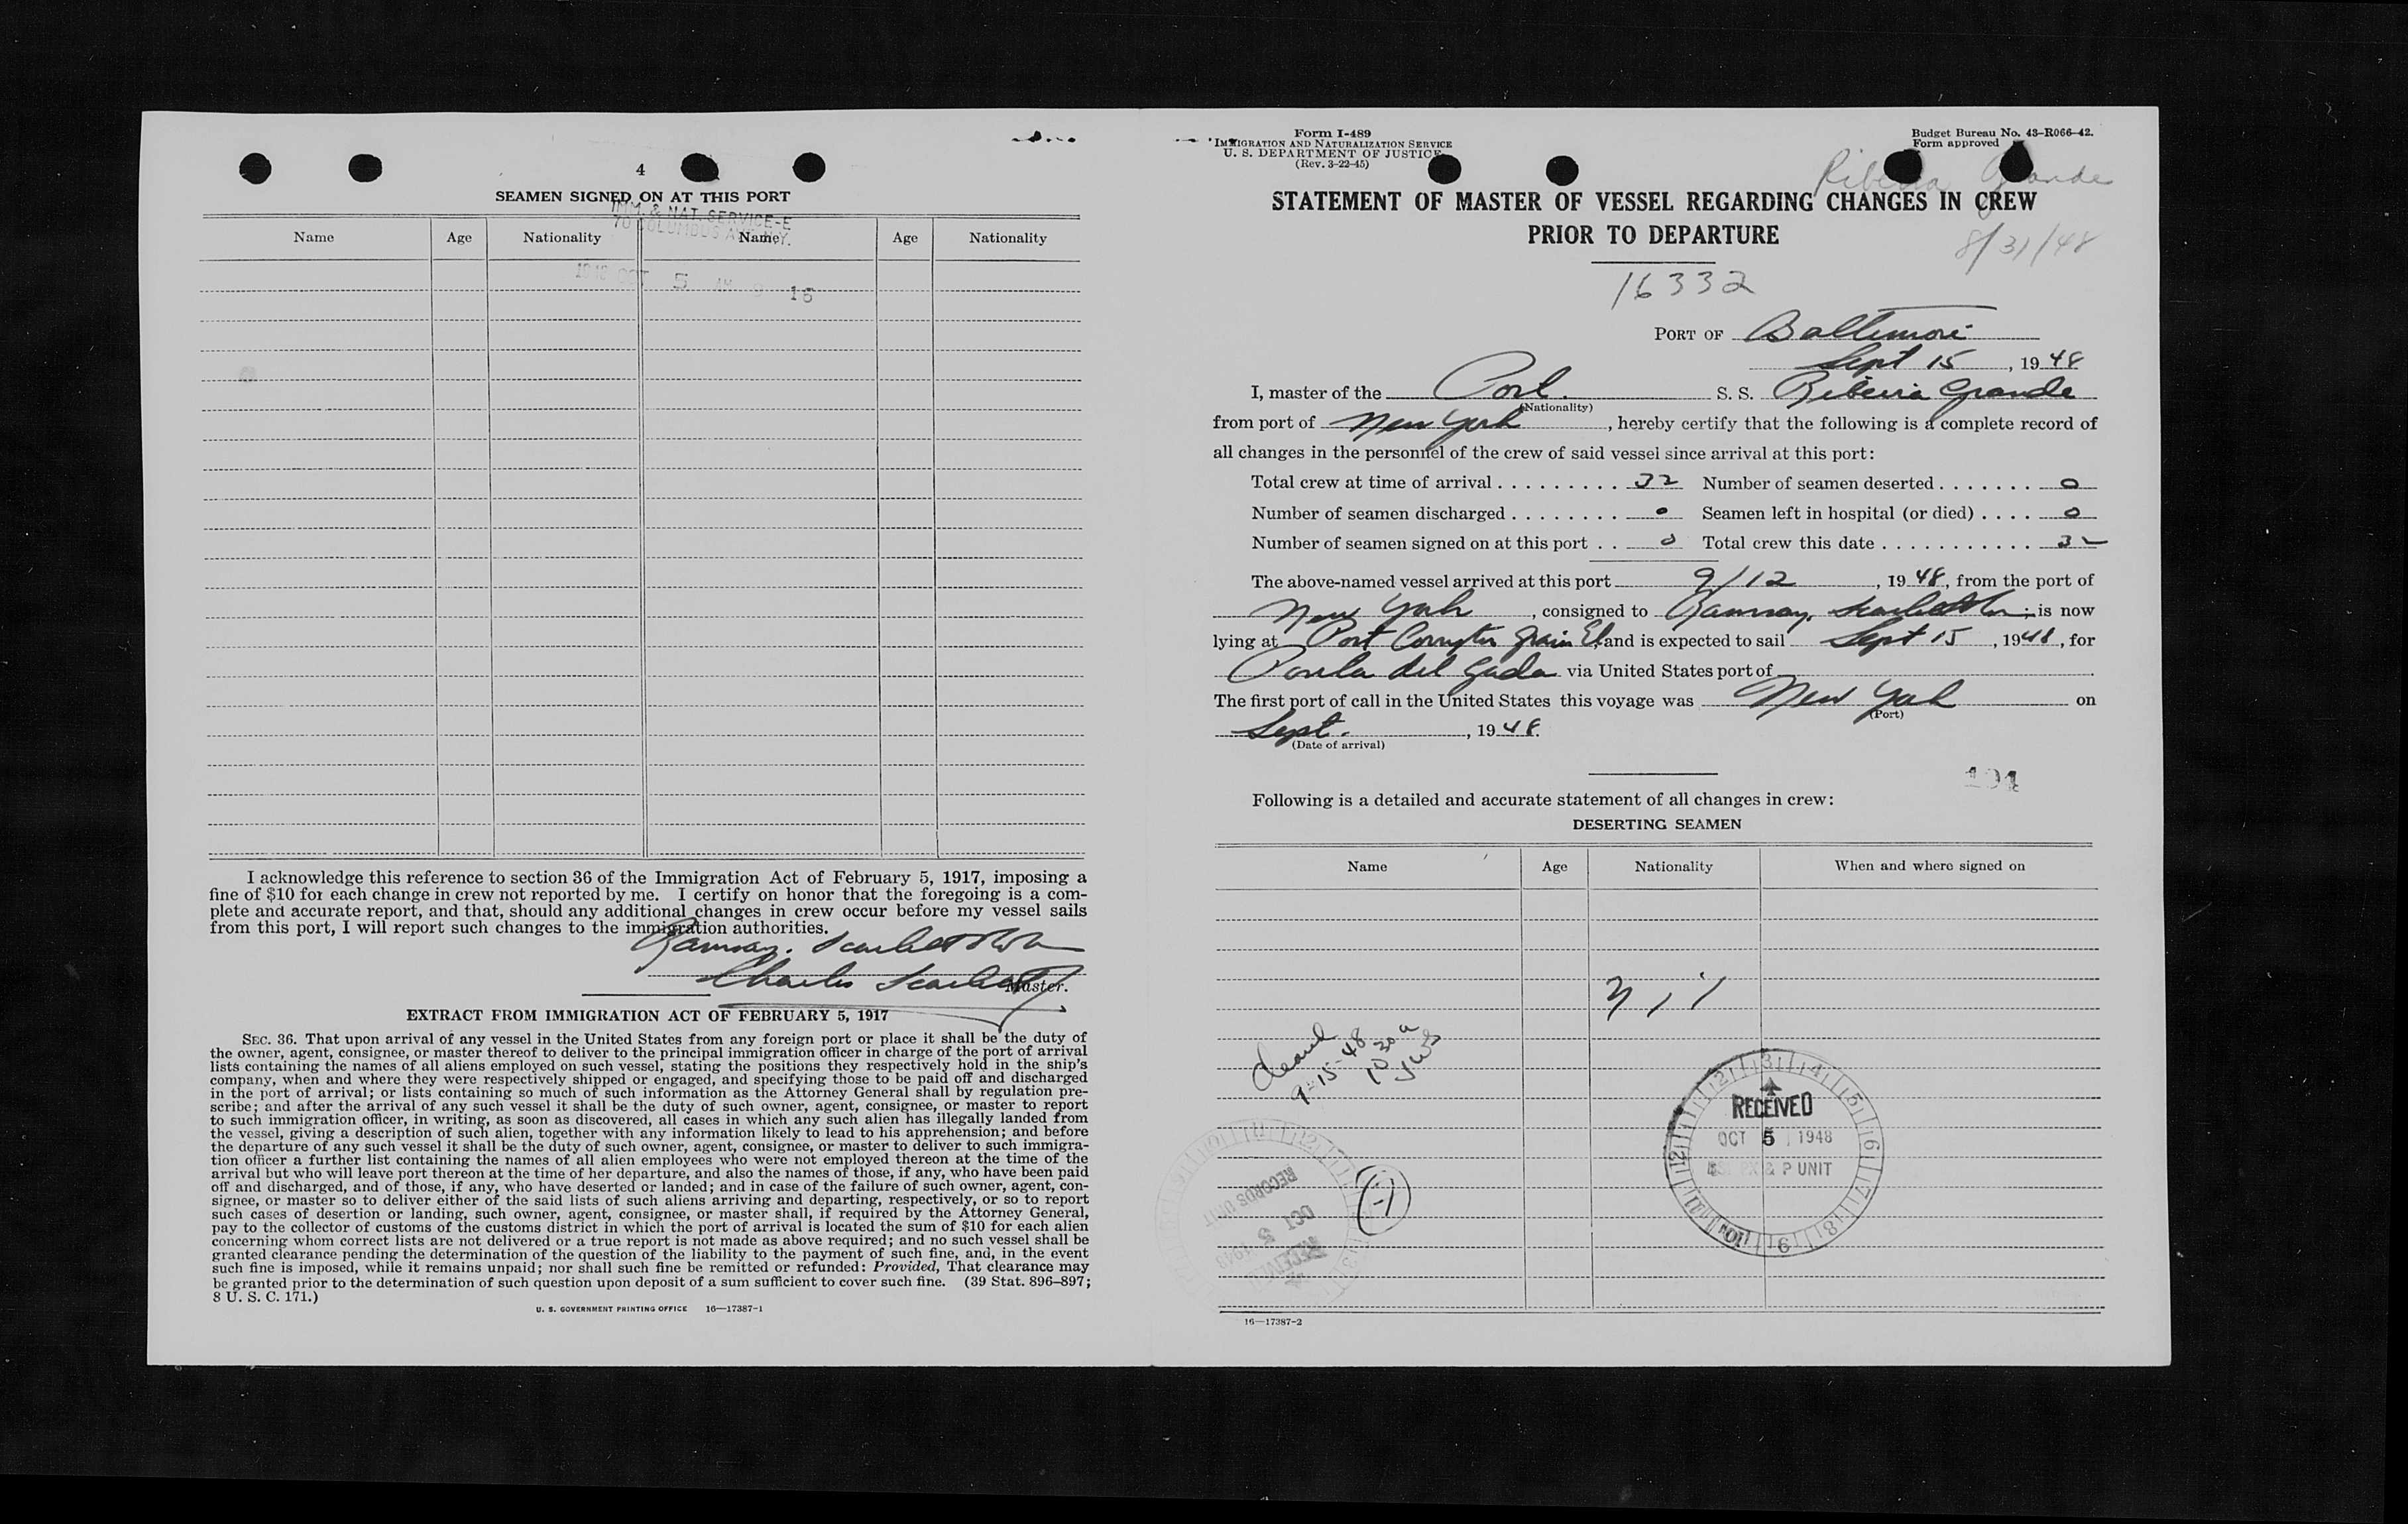 4
SEAMEN SIGNED ON AT THIS PORT
IMM. & NAT. SERVICE-E
70 COLUMBUS AVE. N.Y.
Name Age Nationality Name Age Nationality
1948 OCT 5 AM 9 16
I acknowledge this reference to section 36 of the Immigration Act of February 5, 1917, imposing a
fine of $10 for each change in crew not reported by me. I certify on honor that the foregoing is a com-
plete and accurate report, and that, should any additional changes in crew occur before my vessel sails
from this port, I will report such changes to the immigration authorities.
Ramsay, Scarlett & Co
Charles Scarlett
Master.
EXTRACT FROM IMMIGRATION ACT OF FEBRUARY 5, 1917
SEC. 36. That upon arrival of any vessel in the United States from any foreign port or place it shall be the duty of
the owner, agent, consignee, or master thereof to deliver to the principal immigration officer in charge of the port of arrival
lists containing the names of all aliens employed on such vessel, stating the positions they respectively hold in the ship's
company, when and where they were respectively shipped or engaged, and specifying those to be paid off and discharged
in the port of arrival; or lists containing so much of such information as the Attorney General shall by regulation pre-
scribe; and after the arrival of any such vessel it shall be the duty of such owner, agent, consignee, or master to report
to such immigration officer, in writing, as soon as discovered, all cases in which any such alien has illegally landed from
the vessel, giving a description of such alien, together with any information likely to lead to his apprehension; and before
the departure of any such vessel it shall be the duty of such owner, agent, consignee, or master to deliver to such immigra-
tion officer a further list containing the names of all alien employees who were not employed thereon at the time of the
arrival but who will leave port thereon at the time of her departure, and also the names of those, if any, who have been paid
off and discharged, and of those, if any, who have deserted or landed; and in case of the failure of such owner, agent, con-
signee, or master so to deliver either of the said lists of such aliens arriving and departing, respectively, or so to report
such cases of desertion or landing, such owner, agent, consignee, or master shall, if required by the Attorney General,
pay to the collector of customs of the customs district in which the port of arrival is located the sum of $10 for each alien
concerning whom correct lists are not delivered or a true report is not made as above required; and no such vessel shall be
granted clearance pending the determination of the question of the liability to the payment of such fine, and, in the event
such fine is imposed, while it remains unpaid; nor shall such fine be remitted or refunded: Provided, That clearance may
be granted prior to the determination of such question upon deposit of a sum sufficient to cover such fine. (39 Stat. 896–897;
8 U. S. C. 171.)
U. S. GOVERNMENT PRINTING OFFICE 16—17387-1
Form I-489
IMMIGRATION AND NATURALIZATION SERVICE
U. S. DEPARTMENT OF JUSTICE
(Rev. 3-22-45)
Budget Bureau No. 43-R066-42.
Form approved
Ribeira Grande
STATEMENT OF MASTER OF VESSEL REGARDING CHANGES IN CREW
PRIOR TO DEPARTURE
8/31/48
16332
PORT OF Baltimore
Sept 15, 1948
I, master of the Port. S. S. Ribeira Grande
(Nationality)
from port of New York, hereby certify that the following is a complete record of
all changes in the personnel of the crew of said vessel since arrival at this port:
Total crew at time of arrival 32 Number of seamen deserted 0
Number of seamen discharged 0 Seamen left in hospital (or died) 0
Number of seamen signed on at this port 0 Total crew this date 32
The above-named vessel arrived at this port 9/12, 1948, from the port of
New York, consigned to Ramsay, Scarlett & Co; is now
lying at Port Covington Grain El and is expected to sail Sept 15, 1948, for
Ponta del Gada via United States port of
The first port of call in the United States this voyage was New York on
(Port)
Sept., 1948.
(Date of arrival)
194
Following is a detailed and accurate statement of all changes in crew:
DESERTING SEAMEN
Name Age Nationality When and where signed on
Nil
9-15-48
10 30 a
RECEIVED
OCT 5 1948
& P UNIT
RECORDS UNIT
OCT 5 1948
RECEIVED
16—17387-2